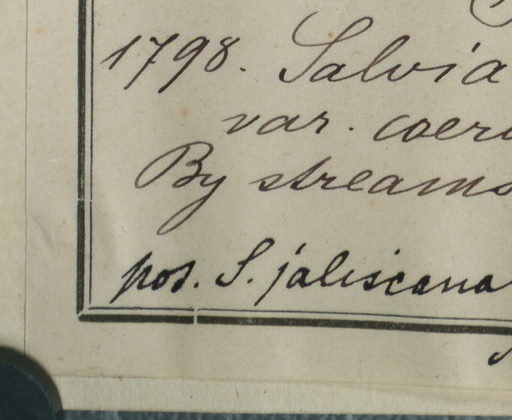 1798. Salvia
var. coeru
By streams
pos. S. jaliscana